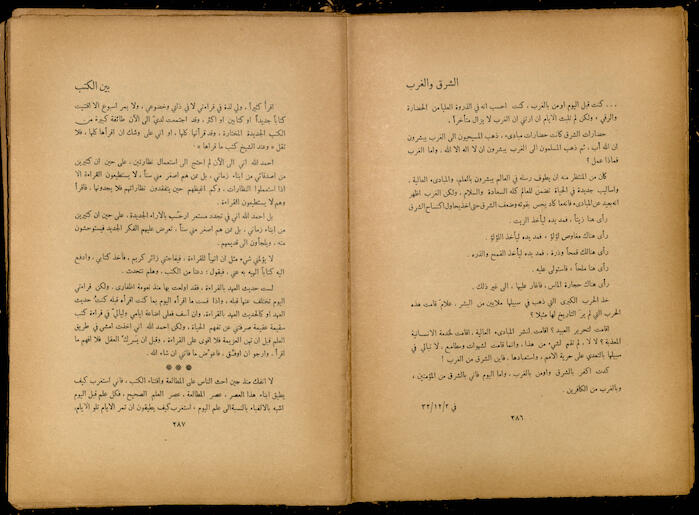 الشرق والغرب
... كنت قبل اليوم اومن بالغرب ، كنت احسب انه في الذروة العليا من الحضارة
والرقي ، ولكن لم تلبث الايام ان ارتني ان الغرب لا يزال متأخراً .
حضارات الشرق كانت حضارات مبادىء ، ذهب المسيحيون الى الغرب يبشرون
ان الله أب ، ثم ذهب المسلمون الى الغرب يبشرون ان لا اله الا الله . واما الغرب
فماذا عمل ؟
كان من المنتظر منه ان يطوف رسله في العالم يبشرون بالعلم ، والمبادىء العالية ،
واساليب جديدة في الحياة تضمن للعالم كله السعادة والسلام ، ولكن الغرب اظهر
انه بعيد عن المبادىء فانه ما كاد يحس بقوته وضعف الشرق حتى اخذ يحاول اكتساح الشرق
رأى هنا زيتاً ، فمد يده ليأخذ الزيت .
رأى هناك مغاوص لؤلؤ ، فمد يده ليأخذ اللؤلؤ .
رأى هنالك قمحاً وذرة ، فمد يده ليأخذ القمح والذره .
رأى هنا ملحاً ، فاستولى عليه .
رأى هناك حجارة الماس ، فاغار عليها ، الى غير ذلك .
خذ الحرب الكبرى التي ذهب في سبيلها ملايين من البشر ، علامَ قامت هذه
الحرب التي لم يرَ التاريخ لها مثيلاً ؟
اقامت لتحرير العبيد ؟ اقامت لنشر المبادىء العالية ، اقامت لخدمة الانسانية
المعذبة ؟ لا لا ، لم تقم لشيء من هذا ، وانما قامت لشهوات ومطامع ، لا تبالي في
سبيلها بالتعدي على حرية الامم ، واستعبادها ، فاين الشرق من الغرب !
كدت اكفر بالشرق واومن بالغرب ، واما اليوم فاني بالشرق من المؤمنين ،
وبالغرب من الكافرين .
في ٣٢/١٢/٢
٢٨٦
بين الكتب
اقرأ كثيراً ، ولي لذة في قراءتي لا في ذاتي وخضوعي ، ولا يمر اسبوع الا اقتنيت
كتاباً جديداً او كتابين او اكثر ، وقد اجتمعت لديّ الى الآن طائفة كبيرة من
الكتب الجديدة المختارة ، وقد قرأتها كلها ، او اني على وشك ان اقرأها كلها ، فلا
تقل « وعند الشيخ كتب ما قراها » .
احمد الله اني الى الآن لم احتج الى استعمال نظارتين ، على حين ان كثيرين
من اصدقائي من ابناء زماني ، بل ممن هم اصغر مني سناً ، لا يستطيعون القراءة الا
اذا استعملوا النظارات ، وكم اغيظهم حين يتفقدون نظاراتهم فلا يجدونها ، فاقرأ
وهم لا يستطيعون القراءة .
بل احمد الله اني في تجدد مستمر ارحّب بالآراء الجديدة ، على حين ان كثيرين
من ابناء زماني ، بل ممن هم اصغر مني سناً ، تعرض عليهم الفكر الجديد فيستوحشون
منه ، ويلجأون الى قديمهم .
لا يؤلمني شيء مثل ان اتهيأ للقراءة ، فيفاجئني زائر كريم ، فأخذ كتابي ، وادفع
اليه كتاباً الهيه به عني ، فيقول : دعنا من الكتب ، وهلم نتحدث .
لست حديث العهد بالقراءة ، فقد اولعت بها منذ نعومة اظفاري ، ولكن قراءتي
اليوم تختلف عنها قبله ، واذا قست ما اقرأه اليوم بما كنت اقرأه قبله كنتُ حديث
العهد او كالحديث العهد بالقراءة . وان آسف فعلى اضاعة ايامي وليالي في قراءة كتب
سقيمة عقيمة صرفتني عن تفهم الحياة ، ولكن احمد الله اني اخذت امشي في طريق
العلم قبل ان تهن العزيمة فلا اقوى على القراءة ، وقبل ان يسرك العقل فلا افهم ما
اقرأ . وارجو ان اوفّق ، فاعوّض ما فاتني ان شاء الله .
* * *
لا انفك منذ حين احث الناس على المطالعة واقتناء الكتب ، فاني استغرب كيف
يطيق ابناء هذا العصر ، عصر المطالعة ، عصر العلم الصحيح ، فكل علم قبل اليوم
اشبه بالالفباء بالنسبة الى علم اليوم ، استغرب كيف يطيقون ان تمر الايام تلو الايام،
٢٨٧